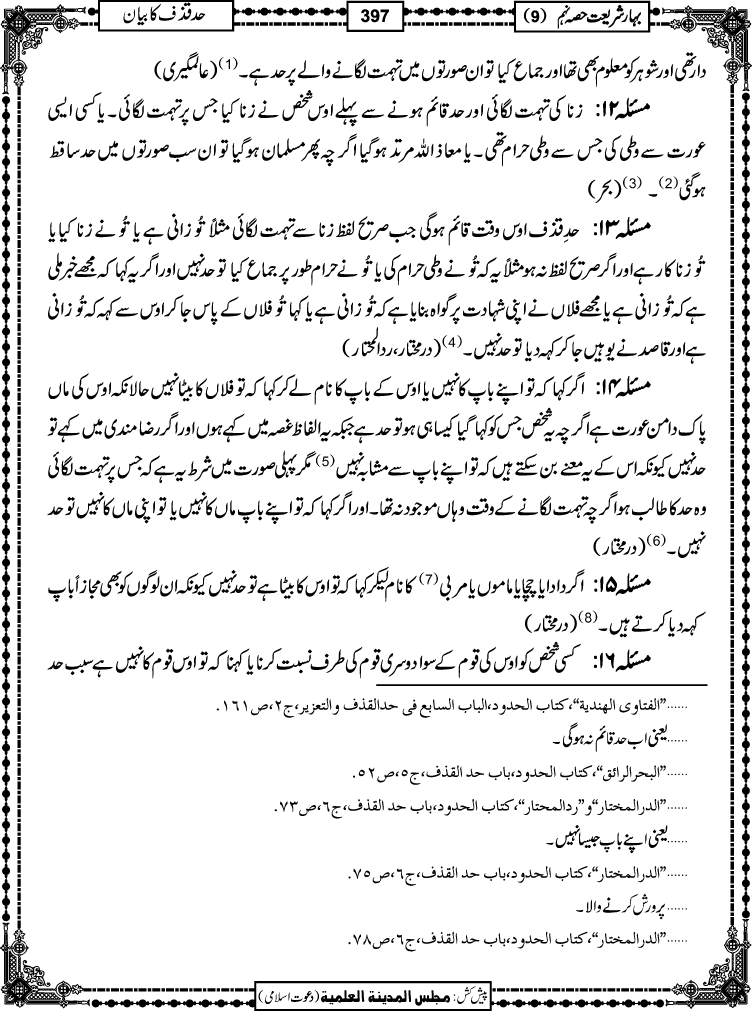 بہار شریعت حصہ نہم (9)
397
حد قذف کا بیان
دار تھی اور شوہر کو معلوم بھی تھا اور جماع کیا تو ان صورتوں میں تہمت لگانے والے پر حد ہے۔(1) (عالمگیری)
مسئلہ ۱۲: زنا کی تہمت لگائی اور حد قائم ہونے سے پہلے اوس شخص نے زنا کیا جس پر تہمت لگائی۔ یا کسی ایسی
عورت سے وطی کی جس سے وطی حرام تھی۔ یا معاذ اللہ مرتد ہوگیا اگرچہ پھر مسلمان ہوگیا تو ان سب صورتوں میں حد ساقط
ہوگئی(2)۔ (3) (بحر)
مسئلہ ۱۳: حدِ قذف اوس وقت قائم ہوگی جب صریح لفظ زنا سے تہمت لگائی مثلاً تُو زانی ہے یا تُو نے زنا کیا یا
تُو زنا کار ہے اور اگر صریح لفظ نہ ہو مثلاً یہ کہ تُو نے وطی حرام کی یا تُو نے حرام طور پر جماع کیا تو حد نہیں اور اگر یہ کہا کہ مجھے خبر ملی
ہے کہ تُو زانی ہے یا مجھے فلاں نے اپنی شہادت پر گواہ بنایا ہے کہ تُو زانی ہے یا کہا تُو فلاں کے پاس جا کر اوس سے کہہ کہ تُو زانی
ہے اور قاصد نے یوہیں جا کر کہہ دیا تو حد نہیں۔(4) (درمختار، ردالمحتار)
مسئلہ ۱۴: اگر کہا کہ تو اپنے باپ کا نہیں یا اوس کے باپ کا نام لے کر کہا کہ تو فلاں کا بیٹا نہیں حالانکہ اوس کی ماں
پاک دامن عورت ہے اگرچہ یہ شخص جس کو کہا گیا کیسا ہی ہو تو حد ہے جبکہ یہ الفاظ غصہ میں کہے ہوں اور اگر رضامندی میں کہے تو
حد نہیں کیونکہ اس کے یہ معنے بن سکتے ہیں کہ تو اپنے باپ سے مشابہ نہیں(5) مگر پہلی صورت میں شرط یہ ہے کہ جس پر تہمت لگائی
وہ حد کا طالب ہو اگرچہ تہمت لگانے کے وقت وہاں موجود نہ تھا۔ اور اگر کہا کہ تو اپنے باپ ماں کا نہیں یا تو اپنی ماں کا نہیں تو حد
نہیں۔(6) (درمختار)
مسئلہ ۱۵: اگر دادا یا چچا یا ماموں یا مربی(7) کا نام لیکر کہا کہ تو اوس کا بیٹا ہے تو حد نہیں کیونکہ ان لوگوں کو بھی مجازاً باپ
کہہ دیا کرتے ہیں۔(8) (درمختار)
مسئلہ ۱۶: کسی شخص کو اوس کی قوم کے سوا دوسری قوم کی طرف نسبت کرنا یا کہنا کہ تو اوس قوم کا نہیں ہے سبب حد
......”الفتاوی الھندیة“،کتاب الحدود،الباب السابع فی حدالقذف والتعزیر،ج۲،ص۱۶۱.
......یعنی اب حد قائم نہ ہوگی۔
......”البحرالرائق“،کتاب الحدود،باب حد القذف،ج۵،ص۵۲.
......”الدرالمختار“و”ردالمحتار“،کتاب الحدود،باب حد القذف،ج۶،ص۷۳.
......یعنی اپنے باپ جیسا نہیں۔
......”الدرالمختار“،کتاب الحدود،باب حد القذف،ج۶،ص۷۵.
......پرورش کرنے والا۔
......”الدرالمختار“،کتاب الحدود،باب حد القذف،ج۶،ص۷۸.
پیش کش: مجلس المدینة العلمیة (دعوت اسلامی)